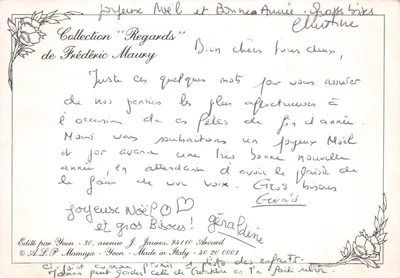 Joyeux Noël et Bonne Année - Gros bises
Christine
Collection "Regards"
de Frédéric Maury
Bien chers tous deux,
Juste ces quelques mots pour vous assurer
de nos pensées les plus affectueuses à
l'occasion de ces fêtes de fin d'année.
Nous vous souhaitons un joyeux Noël
et par avance une très bonne nouvelle
année, en attendant d'avoir le plaisir de
le faire de vive voix. Gros bisous
Joyeux Noël
et gros Bisous! géraldine
Edité par Yvon - 30, avenue J. Jaures. 94110 Arcueil
© A.L.P. Mamiya - Yvon - Made in Italy - 50 20 0001
photo des enfants.